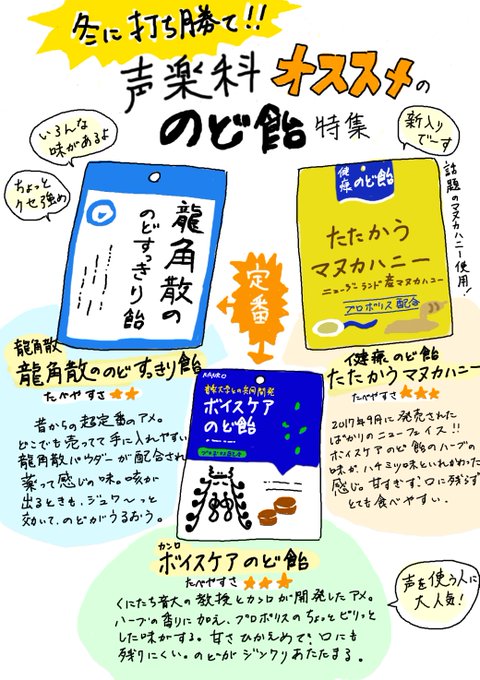 冬に打ち勝て!!
声楽科オススメの
のど飴特集
いろんな
味があるよ
ちょっと
クセ強め
新入り
でーす
話題のマヌカハニー使用!
龍角散の
のどすっきり飴
健康のど飴
たたかう
マヌカハニー
ニュージーランド産マヌカハニー
プロポリス配合
定番
龍角散
龍角散ののどすっきり飴
たべやすさ★★
昔からの超定番のアメ。
どこでも売ってて手に入れやすい
龍角散パウダーが配合され
薬って感じの味。咳が
出るときも、ジュワ〜っと
効いて、のどがうるおう。
健康のど飴
たたかうマヌカハニー
たべやすさ★★★
2017年9月に発売された
ばかりのニューフェイス!!
ボイスケアのど飴のハーブの
味が、ハチミツ味といれかわった
感じ。甘すぎず、口に残らず
とても食べやすい。
KANRO
音大との共同開発
ボイスケア
のど飴
プロポリス配合
カンロ
ボイスケアのど飴
たべやすさ★★★
くにたち音大の教授とカンロが開発したアメ。
ハーブの香りに加え、プロポリスのちょっとピリッと
した味がする。甘さひかえめで、口にも
残りにくい。のどがジンワリあたたまる。
声を使う人に
大人気!